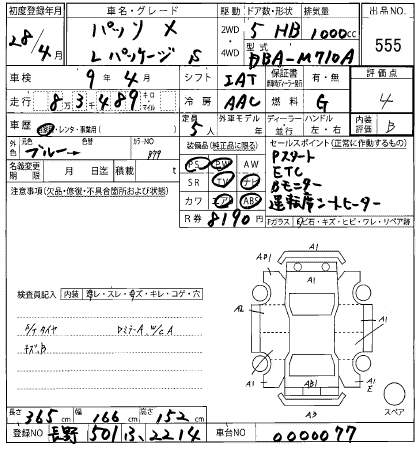 初度登録年月 車名・グレード 駆動 ドア数・形状 排気量 出品NO.
28/4月 パッソ X 2WD 5 HB 1000cc 555
L パッケージ S 4WD 型式 DBA-M710A
車検 9年4月 シフト IAT 保証書 有・無 評価点
走行 8万3千489 キロ マイル 冷房 AAC 燃料 G 4
車歴 自家用・レンタ・事業用( ) 定員 5人 外車モデル ディーラー 並行 ハンドル 左・右 内装評価 B
外色 元色 ブルー 色替 カラーNO 装備品(純正品に限る) セールスポイント(正常に作動するもの)
PS PW AW Pスタート
名義変更期限 月 日迄 積載 t SR TV ナビ ETC
注意事項(欠品・修復・不具合箇所および状態) カワ エアB ABS Bモーター
R券 8190円 運転席シートヒーター
Fガラス 飛石・キズ・ヒビ・ワレ・リペア跡
A1
AB1 A1
A1
検査員記入 内装 スレ・キズ・キレ・コゲ・穴
A2
F/F タイヤ W/C A
キズ B
A1 AB1 A1
E
A3 スペア
長さ 365cm 幅 166cm 高さ 152cm
登録NO 長野 501 2214 車台NO 0000077